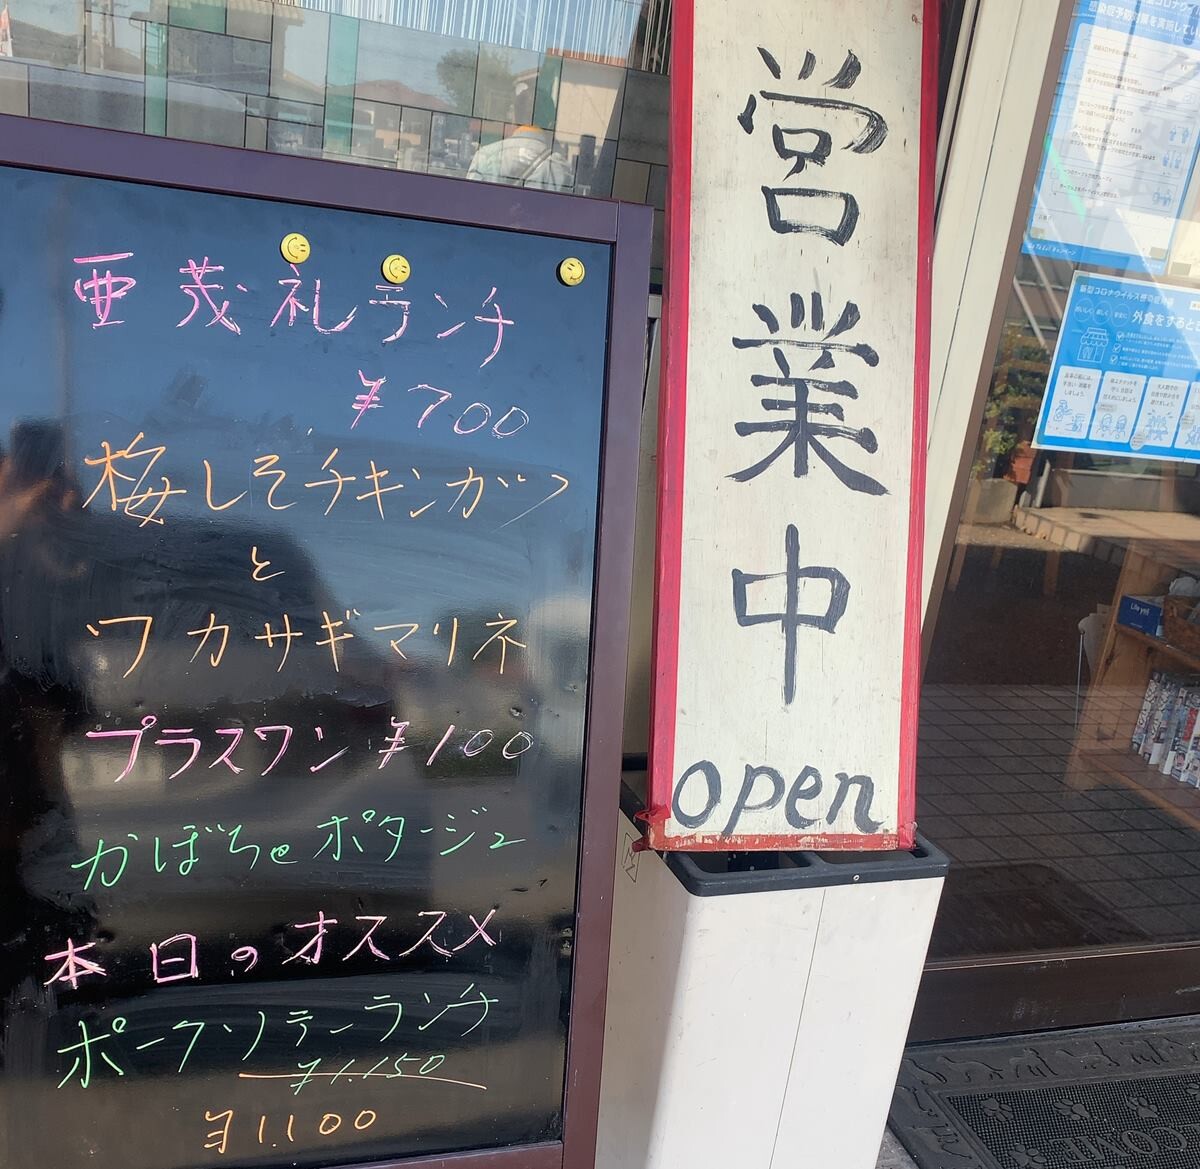 亜茂礼ランチ
¥700
梅しそチキンカツ
と
ワカサギマリネ
プラスワン ¥100
かぼちゃポタージュ
本日のオススメ
ポークソテーランチ
¥1.150
¥1.100
営業中
open
新型コロナウイルス感染症対策
外食をすると